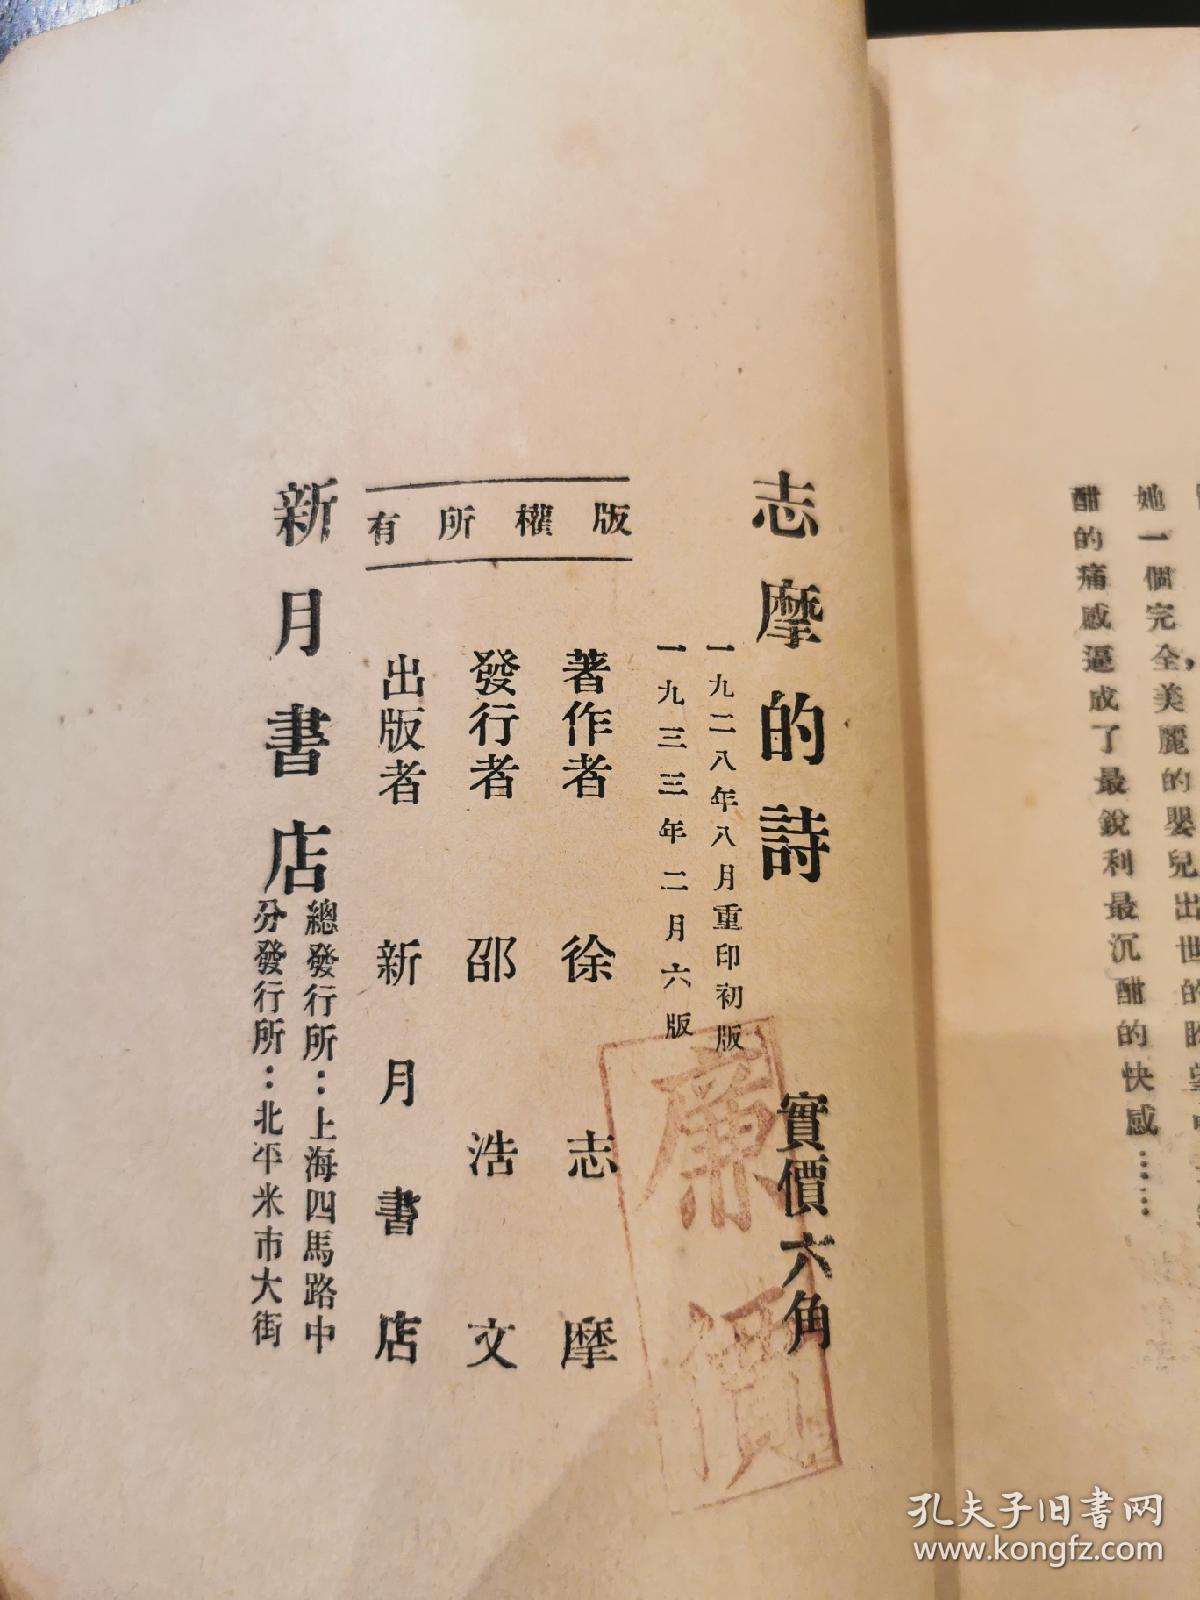 她一個完全，美麗的嬰兒出世的盼望
酣的痛感逼成了最銳利最沉酣的快感……
志摩的詩
實價六角
一九二八年八月重印初版
一九三三年二月六版
廉價
版權所有
著作者 徐志摩
發行者 邵浩文
出版者 新月書店
新月書店
總發行所：上海四馬路中
分發行所：北平米市大街
孔夫子旧书网
www.kongfz.com